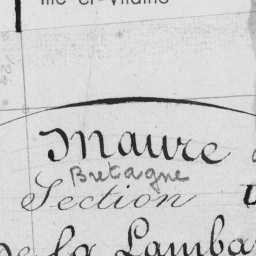 Ille-et-Vilaine
Maure
Bretagne
Section
de la Lamba